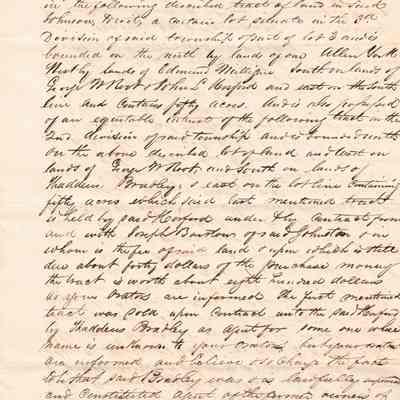 in the following described tract of land in said
Johnson, to wit, a certain lot situate in the 3rd
Division of said township & part of lot 3 and is
bounded on the north by lands of one Allen York
West by lands of Edmund south on lands of
George W Root & John S Hosford and east on the South
line and contains fifty acres. And is also possessed
of an equitable interest of the following tract in the
2nd division of said township and is bounded north
on the above described lot of land and east on
lands of George W Root and South on lands of
Thaddeus Bradley, & east on the lot line containing
fifty acres which said last mentioned tract
is held by said Hosford under & by contract from
and with Joseph Barlow of said Johnston & in
whom is the fee of said land & upon which is still
due about forty dollars of the purchase money
the tract is worth about eight hundred dollars
as your orators are informed. The first mentioned
tract was sold upon contract unto the said Hosford
by Thaddeus Bradley as agent for some one whose
name is unknown to your orators but your orators
are informed and believe & charge the fact
to be that said Bradley was & is lawfully
and constituted agent of the owners of